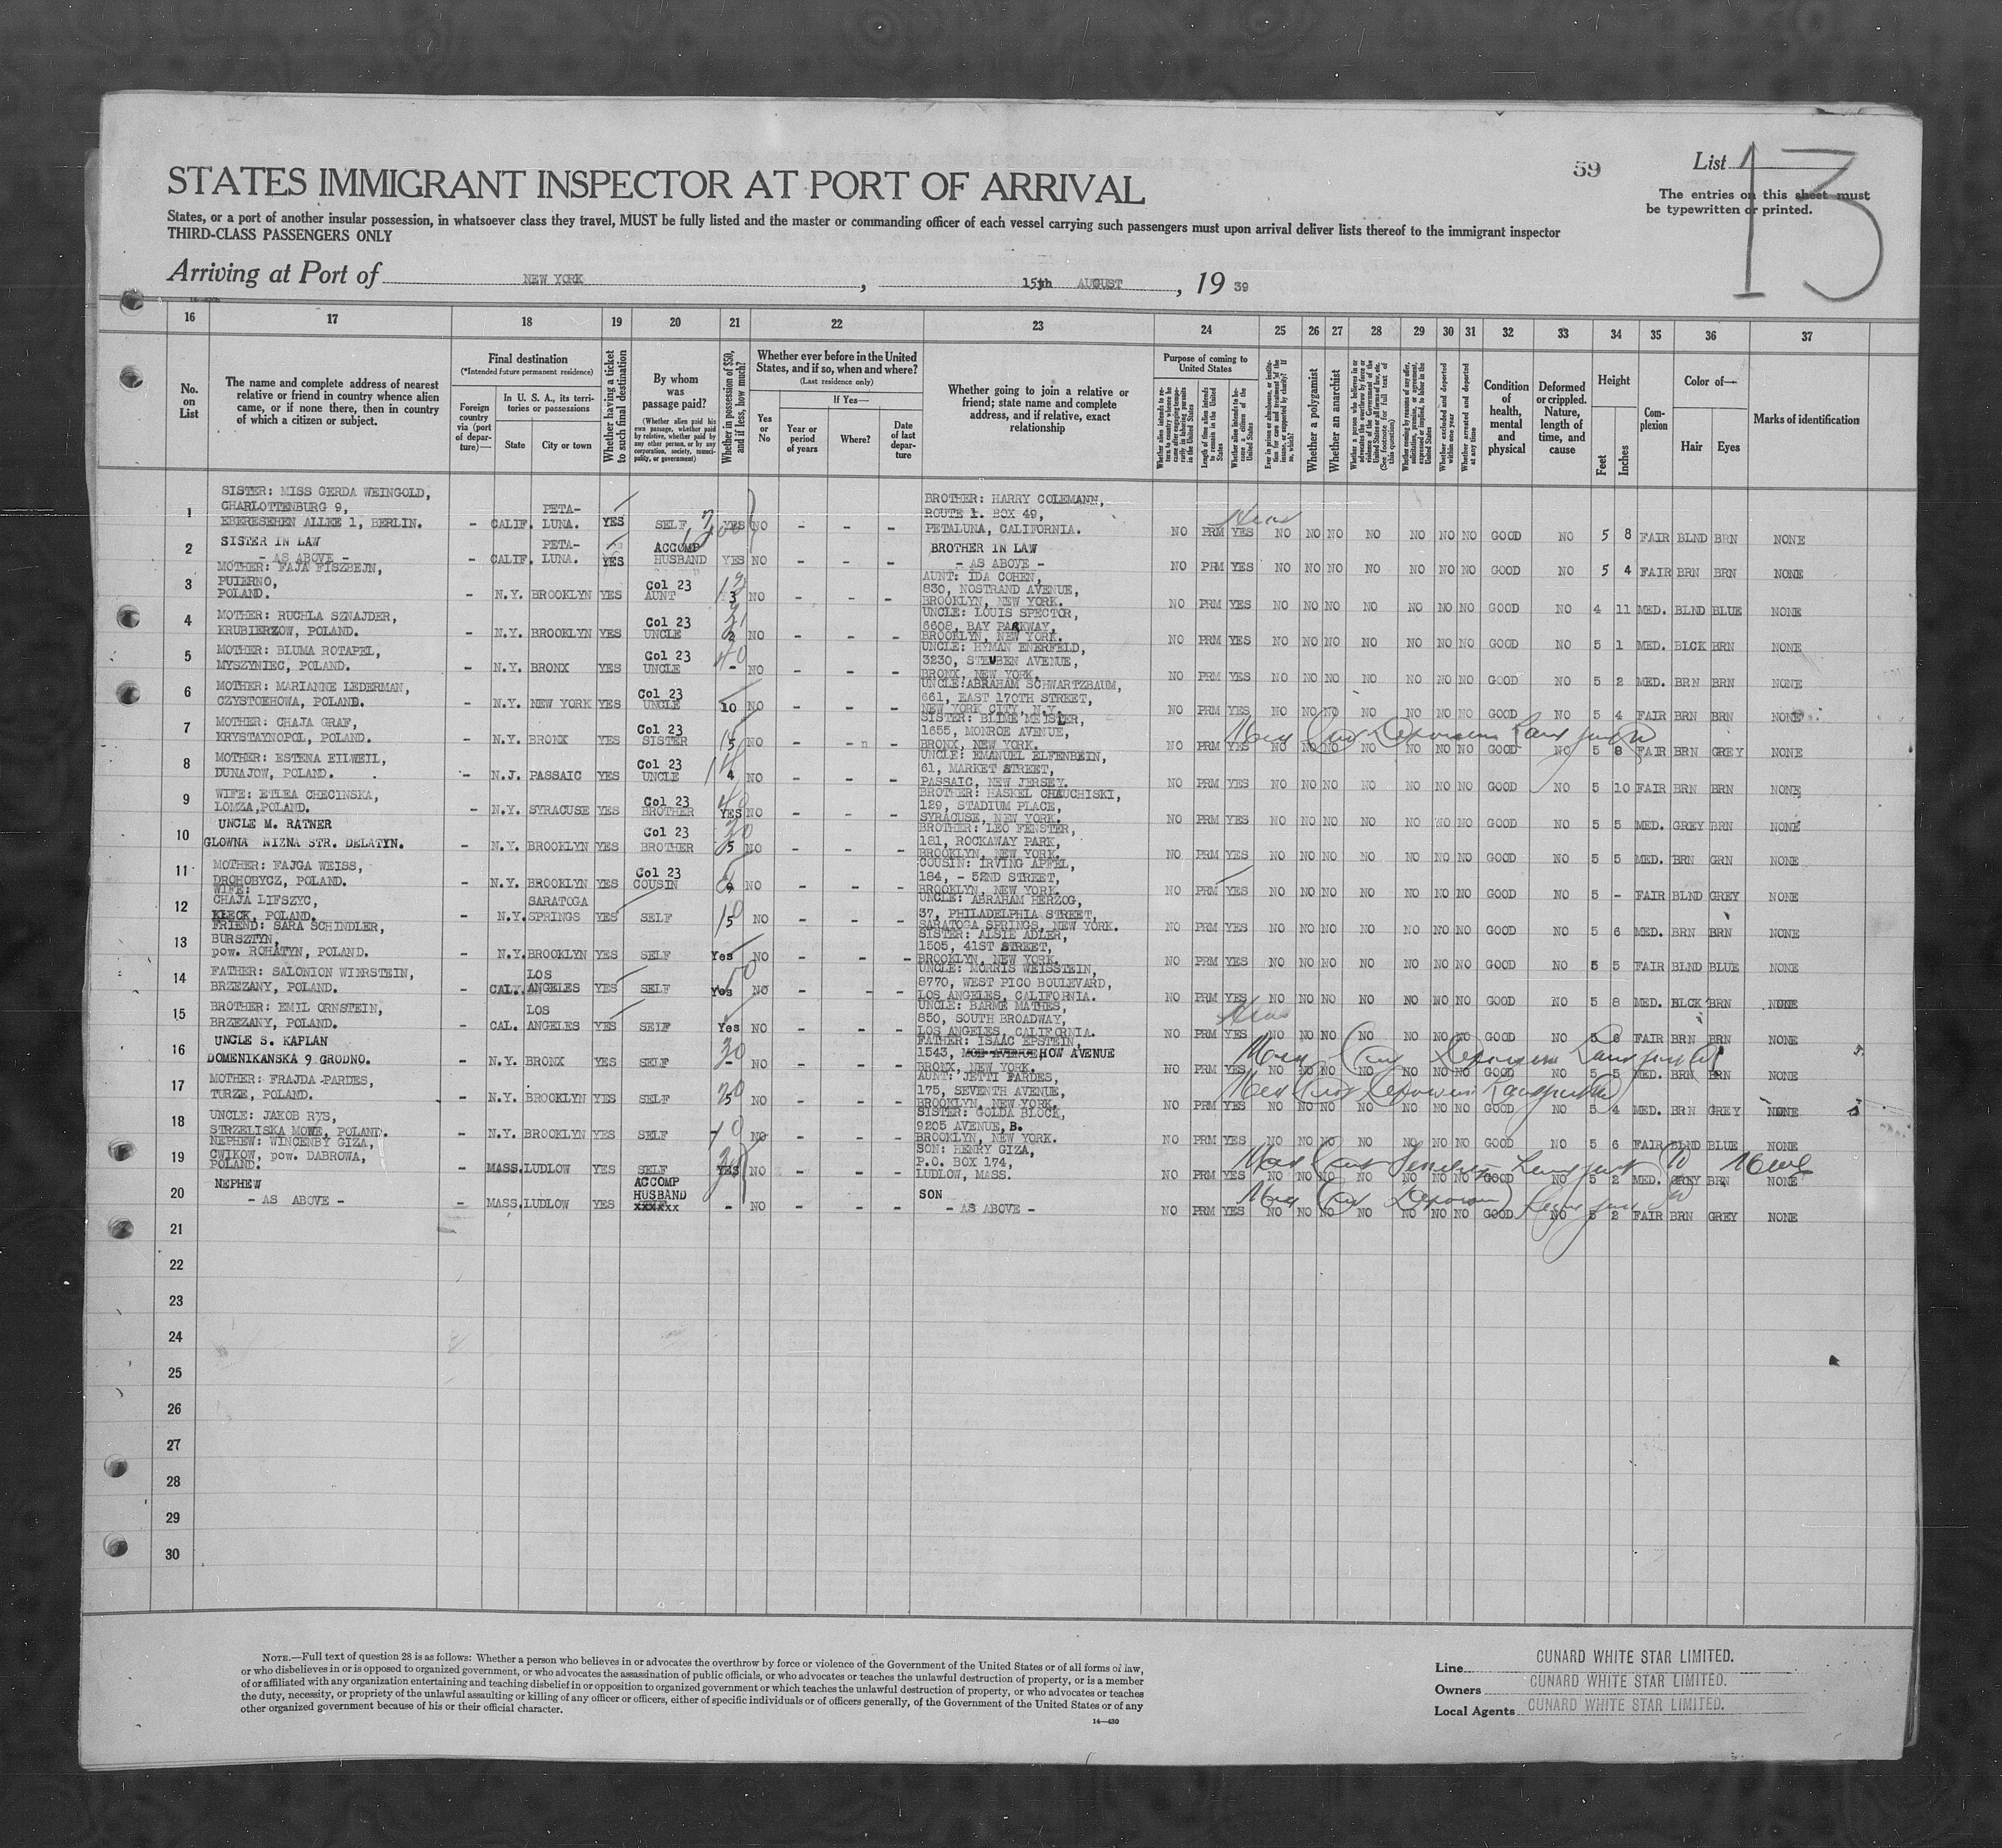 59
List 13
The entries on this sheet must
be typewritten or printed.
STATES IMMIGRANT INSPECTOR AT PORT OF ARRIVAL
States, or a port of another insular possession, in whatsoever class they travel, MUST be fully listed and the master or commanding officer of each vessel carrying such passengers must upon arrival deliver lists thereof to the immigrant inspector
THIRD-CLASS PASSENGERS ONLY
Arriving at Port of NEW YORK, 15th AUGUST, 19 39
16 17 18 19 20 21 22 23 24 25 26 27 28 29 30 31 32 33 34 35 36 37
No. on List
The name and complete address of nearest
relative or friend in country whence alien
came, or if none there, then in country
of which a citizen or subject.
Final destination
(*Intended future permanent residence)
Foreign country via (port of departure)—
In U. S. A., its territories or possessions
State
City or town
Whether having a ticket to such final destination
By whom was passage paid?
(Whether alien paid his own passage, whether paid by relative, whether paid by any other person, or by any corporation, society, municipality, or government)
Whether in possession of $50, and if less, how much?
Whether ever before in the United States, and if so, when and where?
(Last residence only)
Yes or No
If Yes—
Year or period of years
Where?
Date of last departure
Whether going to join a relative or
friend; state name and complete
address, and if relative, exact
relationship
Purpose of coming to United States
Whether alien intends to return to country whence he came after engaging temporarily in laboring pursuits in the United States
Length of time alien intends to remain in the United States
Whether alien intends to become a citizen of the United States
Ever in prison or almshouse, or institution for care and treatment of the insane, or supported by charity? If so, which?
Whether a polygamist
Whether an anarchist
Whether a person who believes in or advocates the overthrow by force or violence of the Government of the United States or all forms of law, etc. (See footnote for full text of this question)
Whether coming by reason of any offer, solicitation, promise, or agreement, expressed or implied, to labor in the United States
Whether excluded and deported within one year
Whether arrested and deported at any time
Condition of health, mental and physical
Deformed or crippled. Nature, length of time, and cause
Height
Feet
Inches
Complexion
Color of—
Hair
Eyes
Marks of identification
1 SISTER: MISS GERDA WEINGOLD, CHARLOTTENBURG 9, EBERESEHEN ALLEE 1, BERLIN. - CALIF. PETA- LUNA. YES SELF YES NO - - - BROTHER: HARRY COLEMANN, ROUTE 1. BOX 49, PETALUNA, CALIFORNIA. NO PRM YES NO NO NO NO NO NO NO GOOD NO 5 8 FAIR BLND BRN NONE
2 SISTER IN LAW - AS ABOVE - - CALIF. PETA- LUNA. YES ACCOMP HUSBAND YES NO - - - BROTHER IN LAW - AS ABOVE - NO PRM YES NO NO NO NO NO NO NO GOOD NO 5 4 FAIR BRN BRN NONE
3 MOTHER: FAJA FISZBEJN, PUIERNO, POLAND. - N.Y. BROOKLYN YES Col 23 AUNT 3 NO - - - AUNT: IDA COHEN, 830, NOSTRAND AVENUE, BROOKLYN, NEW YORK. NO PRM YES NO NO NO NO NO NO NO GOOD NO 4 11 MED. BLND BLUE NONE
4 MOTHER: RUCHLA SZNAJDER, KRUBIERZOW, POLAND. - N.Y. BROOKLYN YES Col 23 UNCLE 2 NO - - - UNCLE: LOUIS SPECTOR, 6608, BAY PARKWAY, BROOKLYN, NEW YORK. NO PRM YES NO NO NO NO NO NO NO GOOD NO 5 1 MED. BLCK BRN NONE
5 MOTHER: BLUMA ROTAPEL, MYSZYNIEC, POLAND. - N.Y. BRONX YES Col 23 UNCLE 40 - NO - - - UNCLE: HYMAN ENERFELD, 3230, STEUBEN AVENUE, BRONX, NEW YORK. NO PRM YES NO NO NO NO NO NO NO GOOD NO 5 2 MED. BRN BRN NONE
6 MOTHER: MARIANNE LEDERMAN, CZYSTOEHOWA, POLAND. - N.Y. NEW YORK YES Col 23 UNCLE 10 NO - - - UNCLE: ABRAHAM SCHWARTZBAUM, 661, EAST 170TH STREET, NEW YORK CITY, N.Y. NO PRM YES NO NO NO NO NO NO NO GOOD NO 5 4 FAIR BRN BRN NONE
7 MOTHER: CHAJA GRAF, KRYSTAYNOPOL, POLAND. - N.Y. BRONX YES Col 23 SISTER 5 NO - - - SISTER: BLIME MEISLER, 1655, MONROE AVENUE, BRONX, NEW YORK. NO PRM YES NO NO NO NO NO NO NO GOOD NO 5 8 FAIR BRN GREY NONE
8 MOTHER: ESTENA EILWEIL, DUNAJOW, POLAND. - N.J. PASSAIC YES Col 23 UNCLE 4 NO - - - UNCLE: EMANUEL ELFENBEIN, 61, MARKET STREET, PASSAIC, NEW JERSEY. NO PRM YES NO NO NO NO NO NO NO GOOD NO 5 10 FAIR BRN BRN NONE
9 WIFE: ETLEA CHECINSKA, LOMZA, POLAND. - N.Y. SYRACUSE YES Col 23 BROTHER YES NO - - - BROTHER: HASKEL CHAUCHISKI, 129, STADIUM PLACE, SYRACUSE, NEW YORK. NO PRM YES NO NO NO NO NO NO NO GOOD NO 5 5 MED. GREY BRN NONE
10 UNCLE M. RATNER GLOWNA NIZNA STR. DELATYN. - N.Y. BROOKLYN YES Col 23 BROTHER 5 NO - - - BROTHER: LEO FENSTER, 181, ROCKAWAY PARK, BROOKLYN, NEW YORK. NO PRM YES NO NO NO NO NO NO NO GOOD NO 5 5 MED. BRN GRN NONE
11 MOTHER: FAJGA WEISS, DROHOBYCZ, POLAND. - N.Y. BROOKLYN YES Col 23 COUSIN NO - - - COUSIN: IRVING APFEL, 184, - 52ND STREET, BROOKLYN, NEW YORK. NO PRM YES NO NO NO NO NO NO NO GOOD NO 5 - FAIR BLND GREY NONE
12 WIFE: CHAJA LIFSZYC, KLECK, POLAND. - N.Y. SARATOGA SPRINGS YES SELF NO - - - UNCLE: ABRAHAM HERZOG, 37, PHILADELPHIA STREET, SARATOGA SPRINGS, NEW YORK. NO PRM YES NO NO NO NO NO NO NO GOOD NO 5 6 MED. BRN BRN NONE
13 FRIEND: SARA SCHINDLER, BURSZTYN, pow. ROHATYN, POLAND. N.Y. BROOKLYN YES SELF Yes NO - - - SISTER: ALSIE ADLER, 1505, 41ST STREET, BROOKLYN, NEW YORK. NO PRM YES NO NO NO NO NO NO NO GOOD NO 5 5 FAIR BLND BLUE NONE
14 FATHER: SALONION WIERSTEIN, BRZEZANY, POLAND. - CAL. LOS ANGELES YES SELF Yes NO - - - UNCLE: MORRIS WEISSTEIN, 8770, WEST PICO BOULEVARD, LOS ANGELES, CALIFORNIA. NO PRM YES NO NO NO NO NO NO NO GOOD NO 5 8 MED. BLCK BRN NONE
15 BROTHER: EMIL ORNSTEIN, BRZEZANY, POLAND. - CAL. LOS ANGELES YES SELF Yes NO - - - UNCLE: BARME MATHES, 850, SOUTH BROADWAY, LOS ANGELES, CALIFORNIA. NO PRM YES NO NO NO NO NO NO NO GOOD NO 5 6 FAIR BRN BRN NONE
16 UNCLE S. KAPLAN DOMENIKANSKA 9 GRODNO. - N.Y. BRONX YES SELF 30 - NO - - - FATHER: ISAAC EPSTEIN, 1543, HOW AVENUE BRONX, NEW YORK. NO PRM YES NO NO NO NO NO NO NO GOOD NO 5 5 MED. BRN BRN NONE
17 MOTHER: FRAJDA PARDES, TURZE, POLAND. - N.Y. BROOKLYN YES SELF NO - - - AUNT: JETTI PARDES, 175, SEVENTH AVENUE, BROOKLYN, NEW YORK. NO PRM YES NO NO NO NO NO NO NO GOOD NO 5 4 MED. BRN GREY NONE
18 UNCLE: JAKOB RYS, STRZELISKA MOWE, POLAND. - N.Y. BROOKLYN YES SELF NO - - - SISTER: GOLDA BLOCK, 9205 AVENUE, B. BROOKLYN, NEW YORK. NO PRM YES NO NO NO NO NO NO NO GOOD NO 5 6 FAIR BLND BLUE NONE
19 NEPHEW: WINCENBY GIZA, CWIKOW, pow. DABROWA, POLAND. - MASS. LUDLOW YES SELF YES NO - - - SON: HENRY GIZA, P.O. BOX 174, LUDLOW, MASS. NO PRM YES NO NO NO NO NO NO NO GOOD NO 5 2 MED. GREY BRN NONE
20 NEPHEW - AS ABOVE - - MASS. LUDLOW YES ACCOMP HUSBAND xxxxxx - NO - - - SON - AS ABOVE - NO PRM YES NO NO NO NO NO NO NO GOOD NO 5 2 FAIR BRN GREY NONE
21
22
23
24
25
26
27
28
29
30
NOTE.—Full text of question 28 is as follows: Whether a person who believes in or advocates the overthrow by force or violence of the Government of the United States or of all forms of law,
or who disbelieves in or is opposed to organized government, or who advocates the assassination of public officials, or who advocates or teaches the unlawful destruction of property, or is a member
of or affiliated with any organization entertaining and teaching disbelief in or opposition to organized government or which teaches the unlawful destruction of property, or who advocates or teaches
the duty, necessity, or propriety of the unlawful assaulting or killing of any officer or officers, either of specific individuals or of officers generally, of the Government of the United States or of any
other organized government because of his or their official character.
14—430
Line CUNARD WHITE STAR LIMITED.
Owners CUNARD WHITE STAR LIMITED.
Local Agents CUNARD WHITE STAR LIMITED.